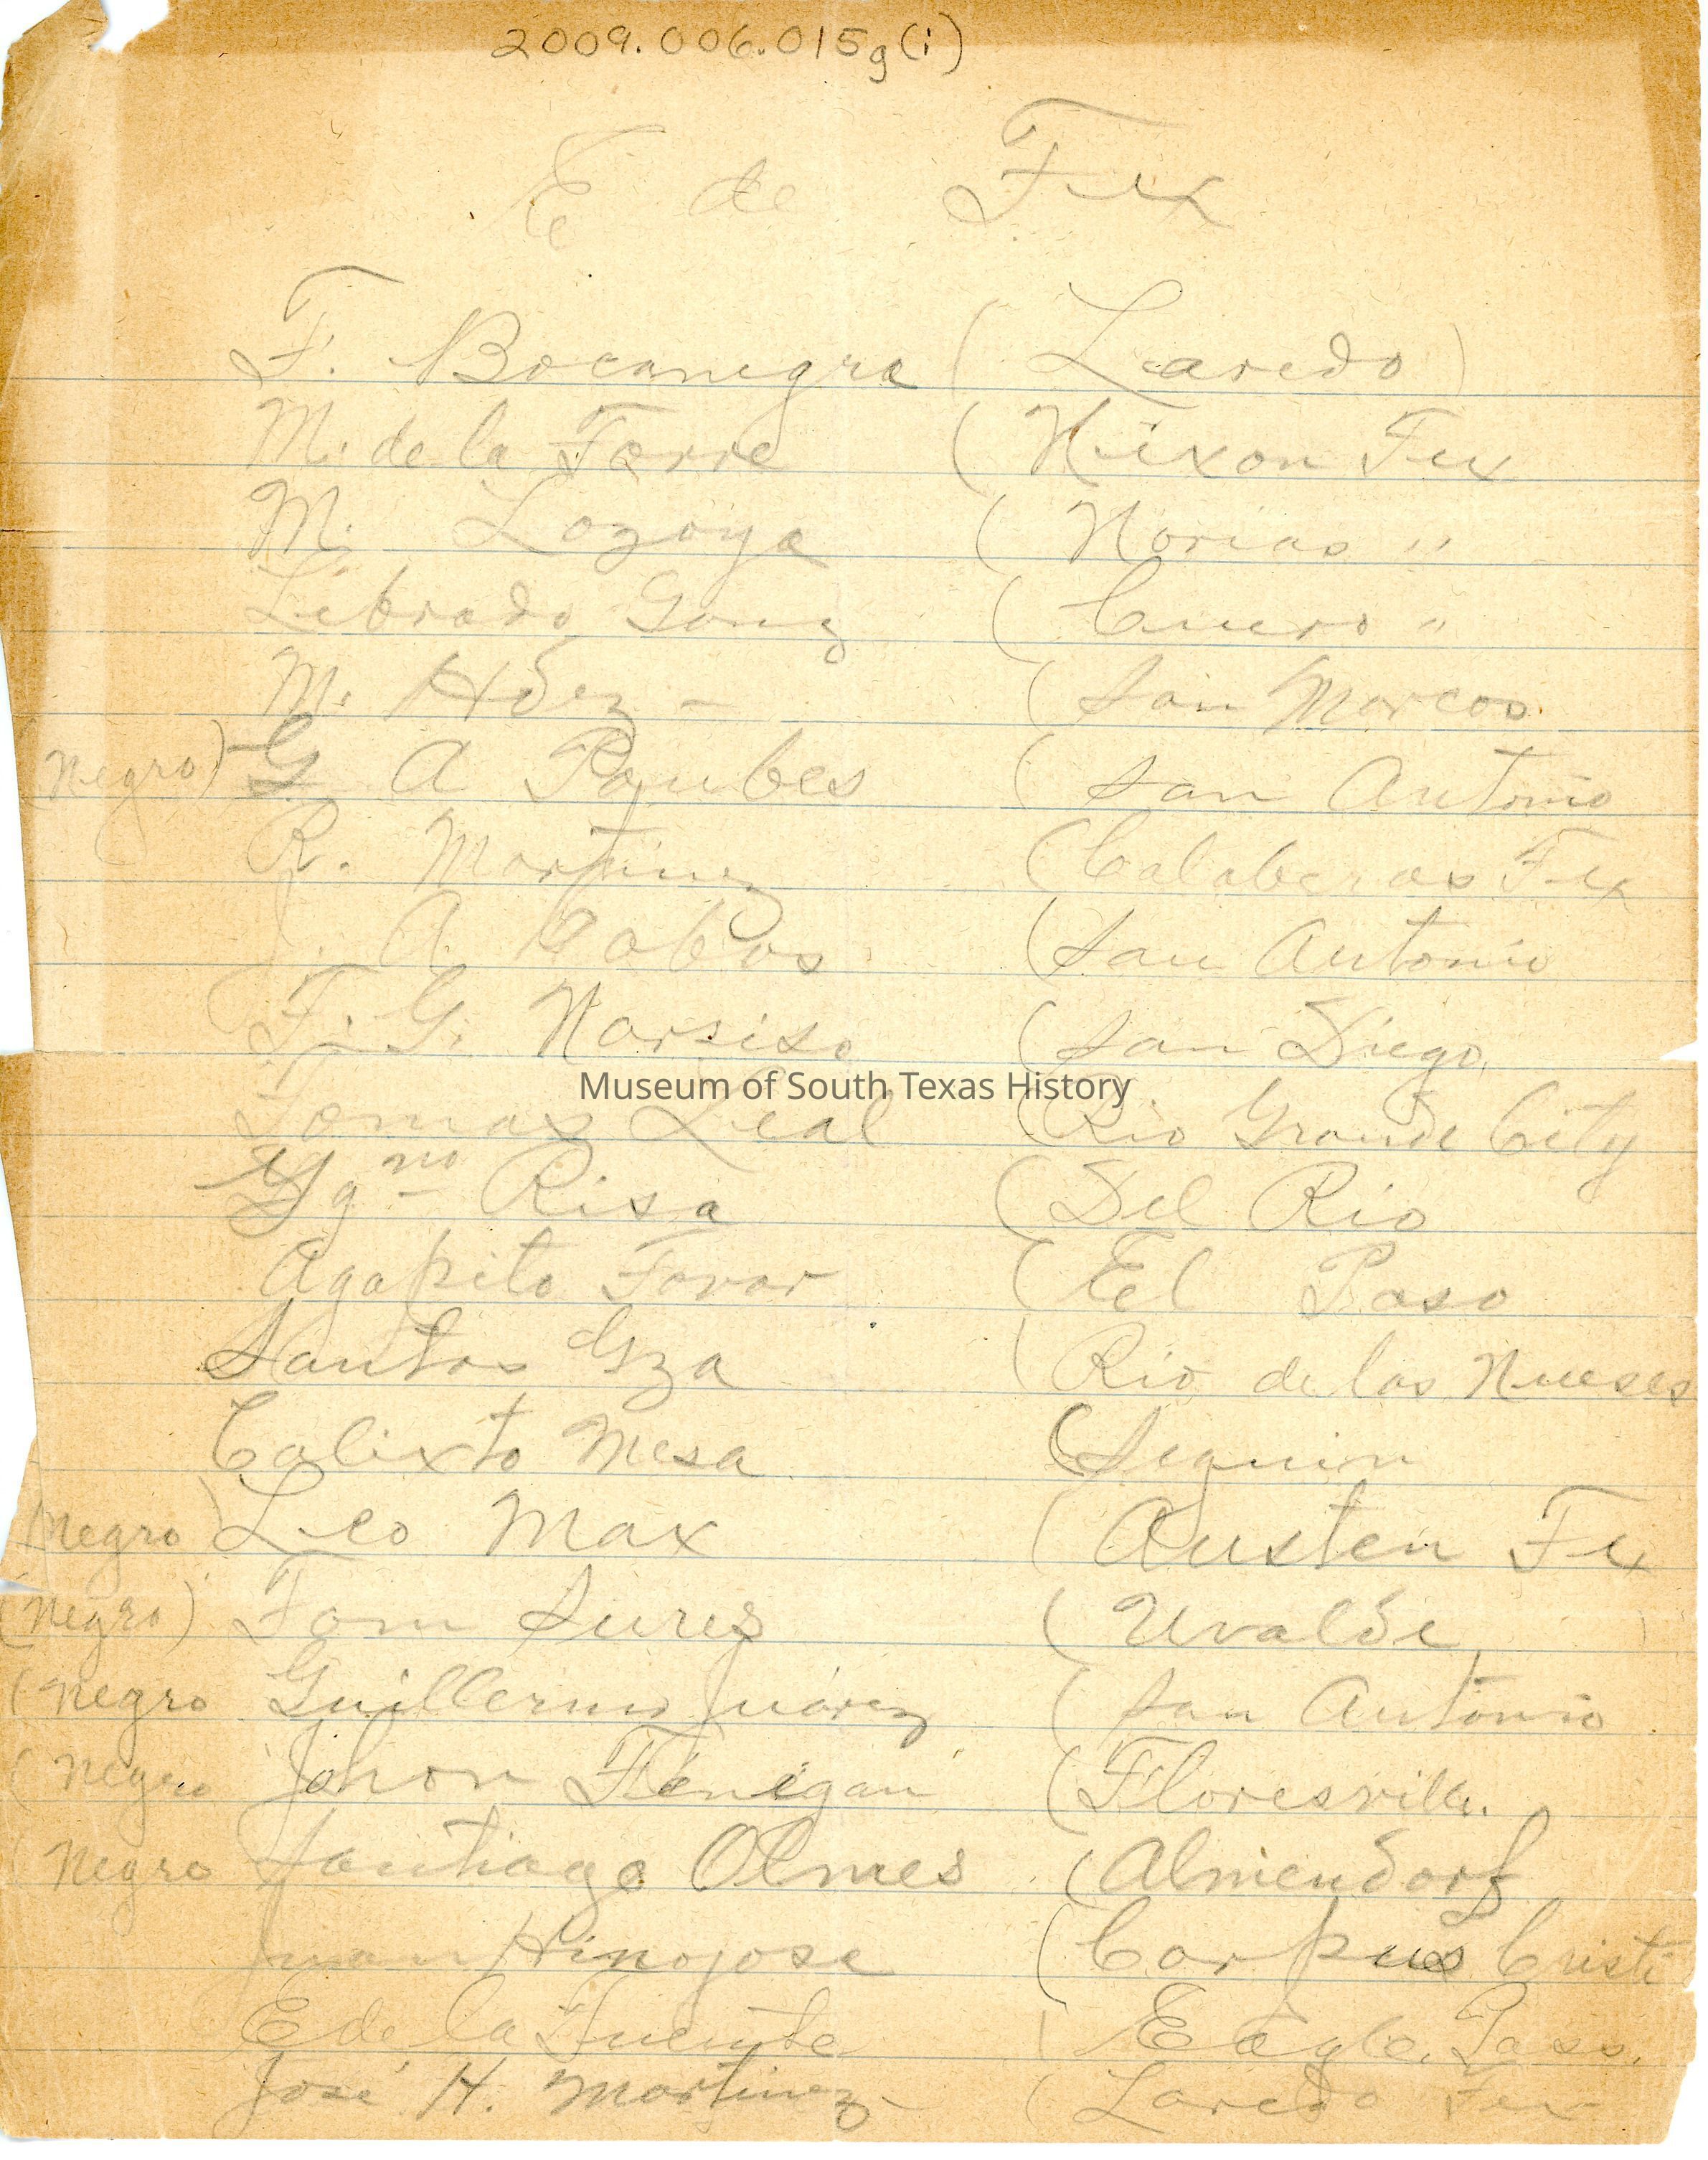 2009.006.015g(i)
E de Tex
F. Bocanegra (Laredo)
M. de la Torre (Nixon Tex
M. Lozoya (Norias "
Librado Gonz (Cuero "
M. Hdez - (San Marcos.
(Negro) G A Paubes (San Antonio
R. Martinez (Calaberas Tex
J. A. Cobos (San Antonio
T. G. Narsiso (San Diego
Museum of South Texas History
Tomas Leal (Rio Grande City
Yg no Risa (Del Rio
Agapito Tovar (El Paso
Santos Gza (Rio de las Nueses
Calixto Mesa (Seguin
(Negro) Leo Max (Austen Tex
(Negro) Tom Surez (Uvalde
(Negro Guillermo Juárez (San Antonio
(Negro Johon Finigan (Floresville.
(Negro Santiago Olmes (Almendorf
Juan Hinojose (Corpus Cristi
E de la Fuente (Eagle. Pass.
José H. Martinez (Laredo Tex